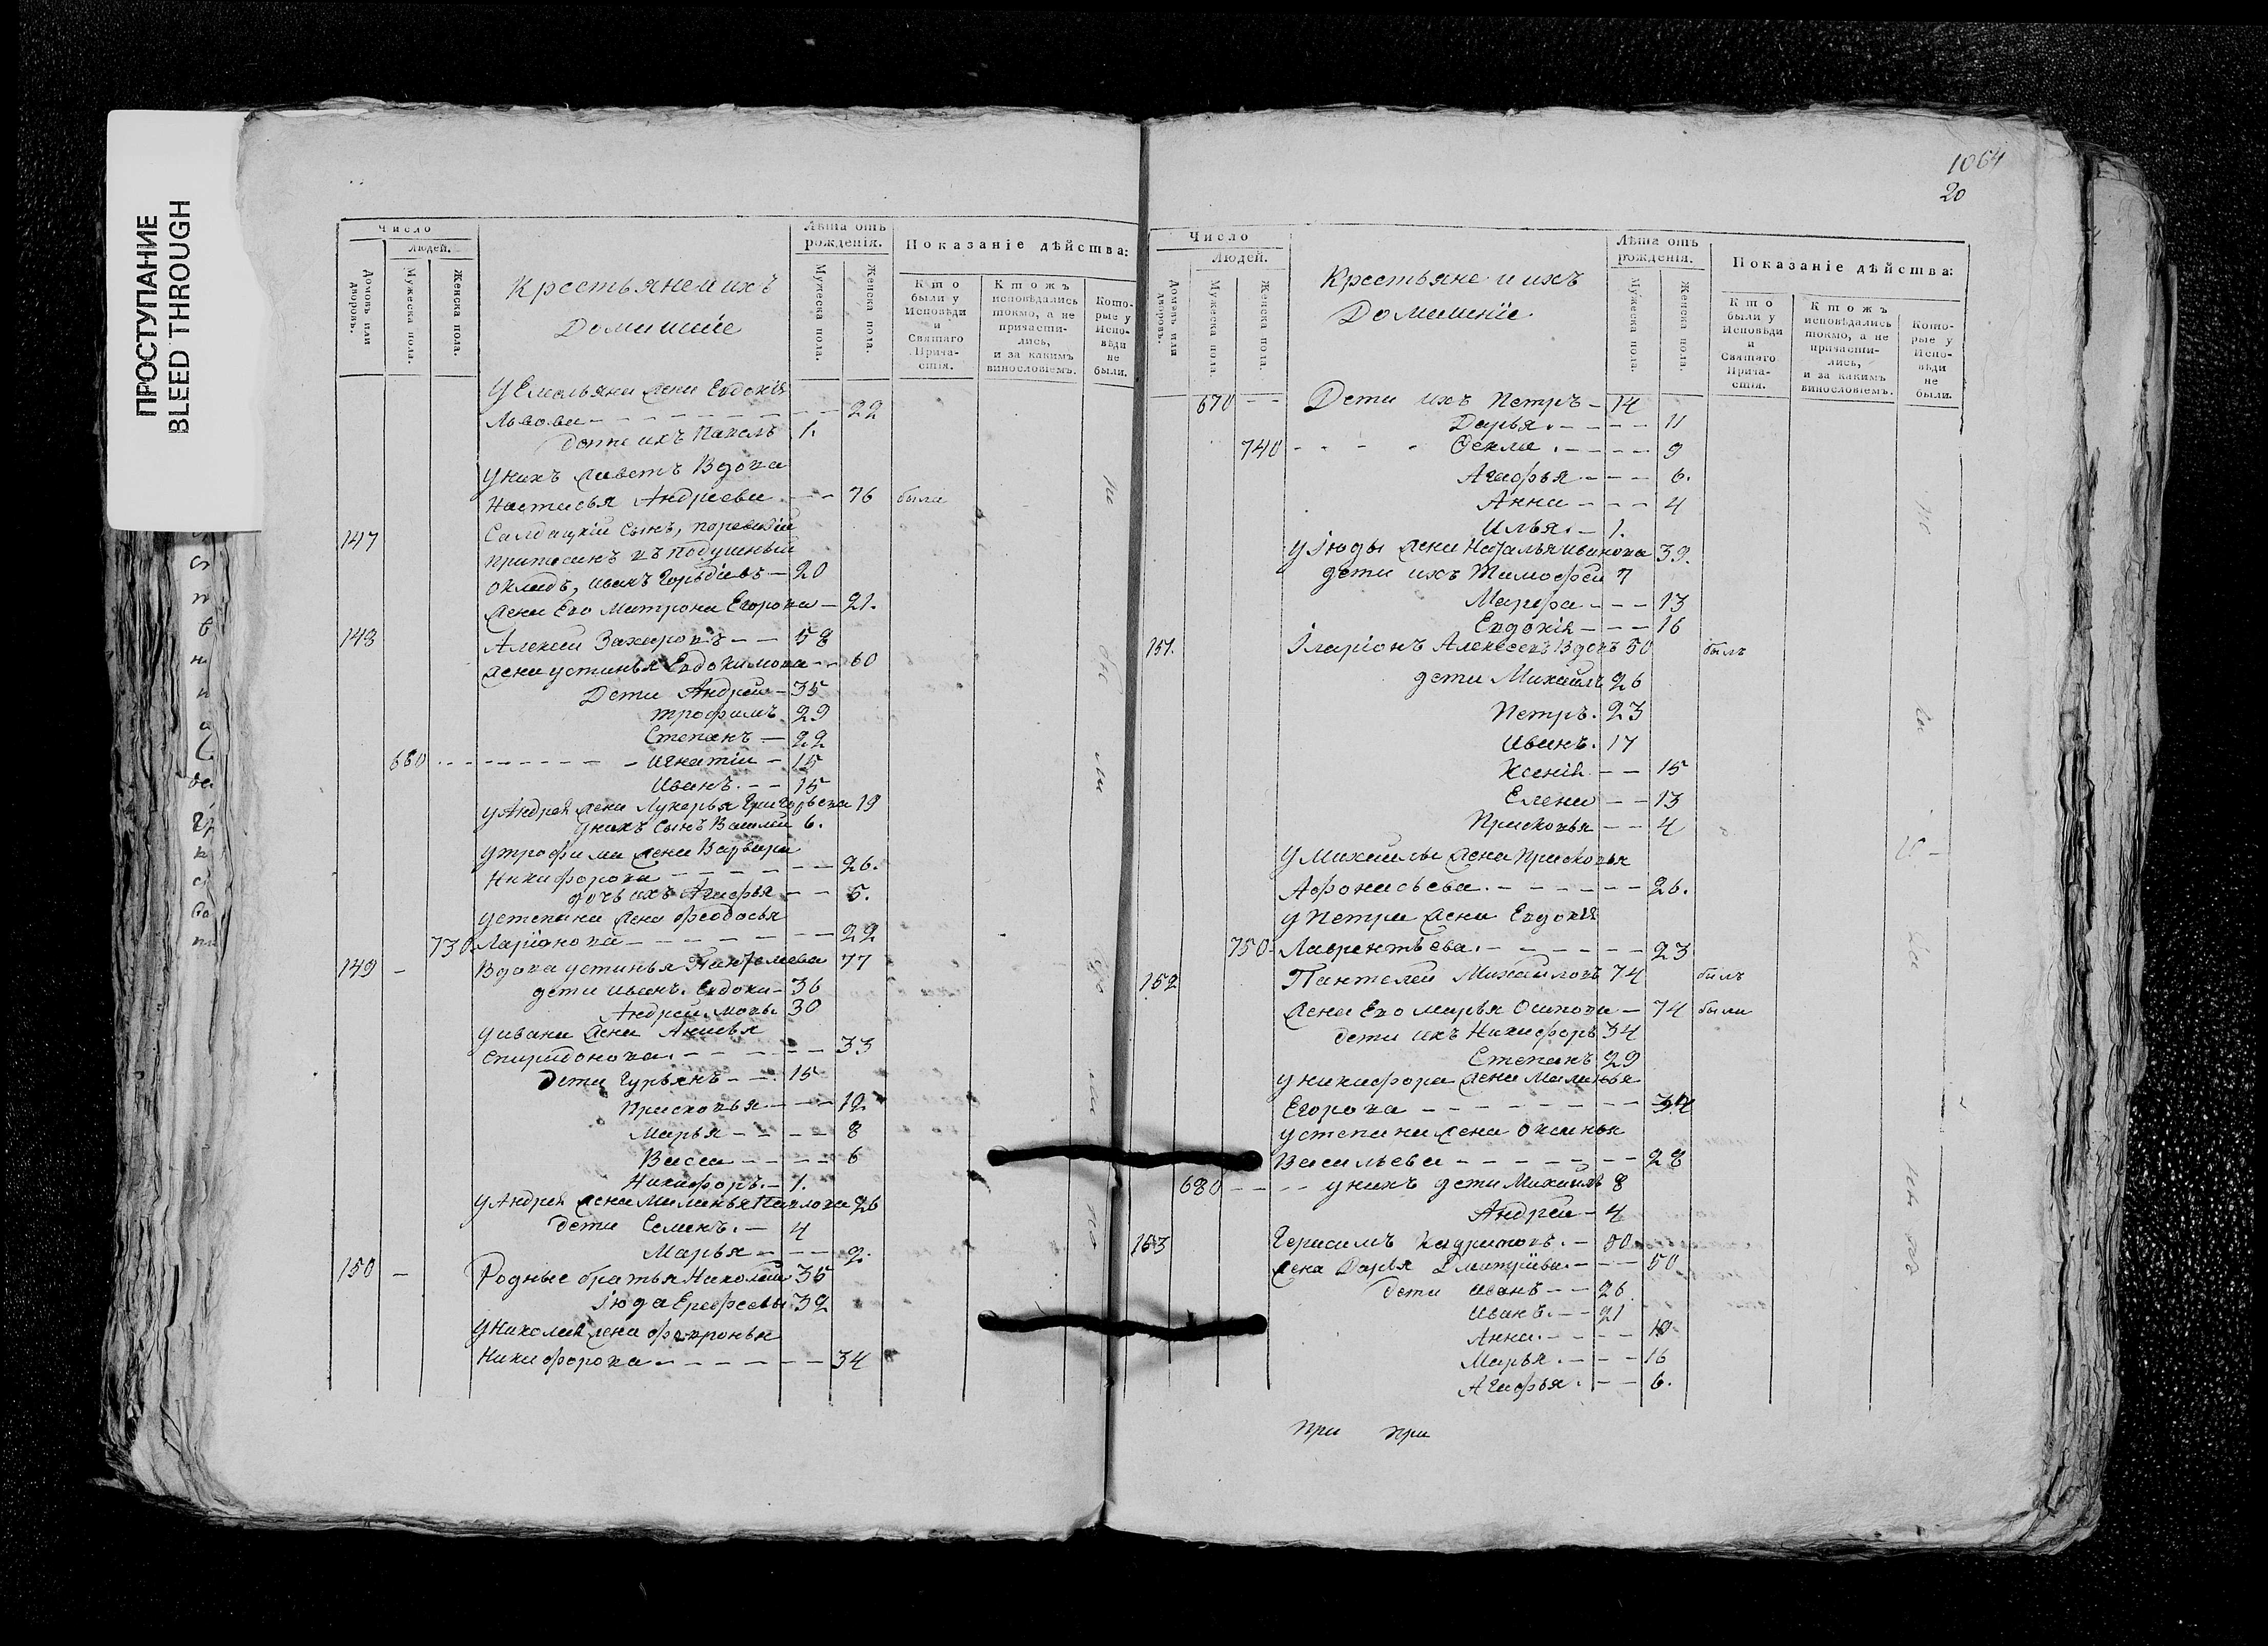 ПРОСТУПАНИЕ
BLEED THROUGH
Число
людей.
Домовъ или дворовъ.
Мужеска пола.
Женска пола.
Крестьяне и ихъ
Домашніе
Лѣта отъ рожденія.
Мужеска пола.
Женска пола.
Показаніе дѣйства:
Кто были у Исповѣди и Святаго Прича-стія.
Ктожъ исповѣдались токмо, а не причасти-лись, и за какимъ винословіемъ.
Кото-рые у Испо-вѣди не были.
У Емельяна жена Евдокія
Львова 22
дети ихъ Павелъ 1.
У нихъ живетъ Вдова
Настасья Андреева 76 была
147 Салдацкій сынъ,
приписанъ въ подушный
окладъ, Иванъ Гордѣевъ 20
жена Его Матрона Егорова 21.
148 Алексей Захаровъ 58
жена Устинья Евдокимова 60
Дети Андрей 35
Трофимъ 29
Степанъ 22
660 Игнатій 15
Иванъ 15
У Андрея жена Лукерья Григорьева 19
У нихъ сынъ Василей 6.
У Трофима жена Варвара
Никифорова 26.
дочь ихъ Агафья 5.
У Степана жена Феодосья
730 Ларіонова 22
149 Вдова Устинья Панфилева 77
дети Иванъ Евдоки- 36
Андрей мовы 30
У Ивана жена Анисья
Спиридонова 33
Дети Гурьянъ 15
Прасковья 12
Марья 8
Васса 6
Никифоръ 1.
У Андрея жена Маланья Павлова 26
дети Семенъ 4
Марья 2.
150 Родные братья Николай 35
Іюда Ерефеевы 32
У Николая жена Февронья
Никифорова 34
1064
20
Число
Людей.
Домовъ или дворовъ.
Мужеска пола.
Женска пола.
Крестьяне и ихъ
Домашніе
Лѣта отъ рожденія.
Мужеска пола.
Женска пола.
Показаніе дѣйства:
Кто были у Исповѣди и Святаго Прича-стія.
Ктожъ исповѣдались токмо, а не причасти-лись, и за какимъ винословіемъ.
Кото-рые у Испо-вѣди не были.
670 Дети ихъ Петръ 14
Дарья 11
740 Фекла 9
Агафья 6.
Анна 4
Илья 1.
У Іюды жена Наталья Иванова 39.
дети ихъ Тимофей 7
Марфа 13
Евдокія 16
151. Іларіонъ Алексеевъ Вдовъ 50 былъ
дети Михаилъ 26
Петръ 23
Иванъ 17
Ксенія 15
Елена 13
Прасковья 4
У Михаилы жена Прасковья
Афонасьева 26.
У Петра жена Евдокія
750 Лаврентьева 23
152 Пантелей Михайловъ 74 былъ
жена Его Марья Осипова 74 была
дети ихъ Никифоръ 34
Степанъ 29
У Никифора жена Маланья
Егорова 34
У Степана жена Оксинья
Васильева 28
680 у нихъ дети Михаилъ 8
Андрей 4
153 Герасимъ Кадратовъ 50
жена Дарья Дмитріева 50
дети Иванъ 26
Иванъ 21
Анна 19
Марья 16
Агафья 6.
при при